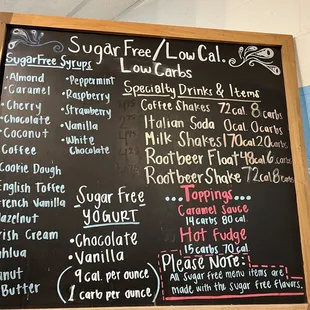 Sugar Free/Low Cal.
Low Carbs
SugarFree Syrups
•Almond
Caramel
•Cherry
Chocolate
Coconut
•Coffee
Cookie Dough
English Toffee
French Vanilla
Hazelnut
Irish Cream
Kahlua
Peanut
Butter
•Peppermint
•Raspberry
•Strawberry
•Vanilla
•White
Chocolate
Sugar Free
YOGURT
•Chocolate
•Vanilla
(9 cal. per ounce
1 carb per ounce)
Specialty Drinks & Items
Coffee Shakes 72 cal. 8 carbs
Italian Soda 0 cal. 0 carbs
Milk Shakes 170 cal 20 carbs
Rootbeer Float 48 cal 6 carbs
Rootbeer Shake 72 cal 8 carbs
...Toppings...
Caramel Sauce
14 carbs 80 cal.
Hot Fudge
15 carbs 70 cal.
Please Note:
All sugar free menu items are
made with the sugar free flavors.